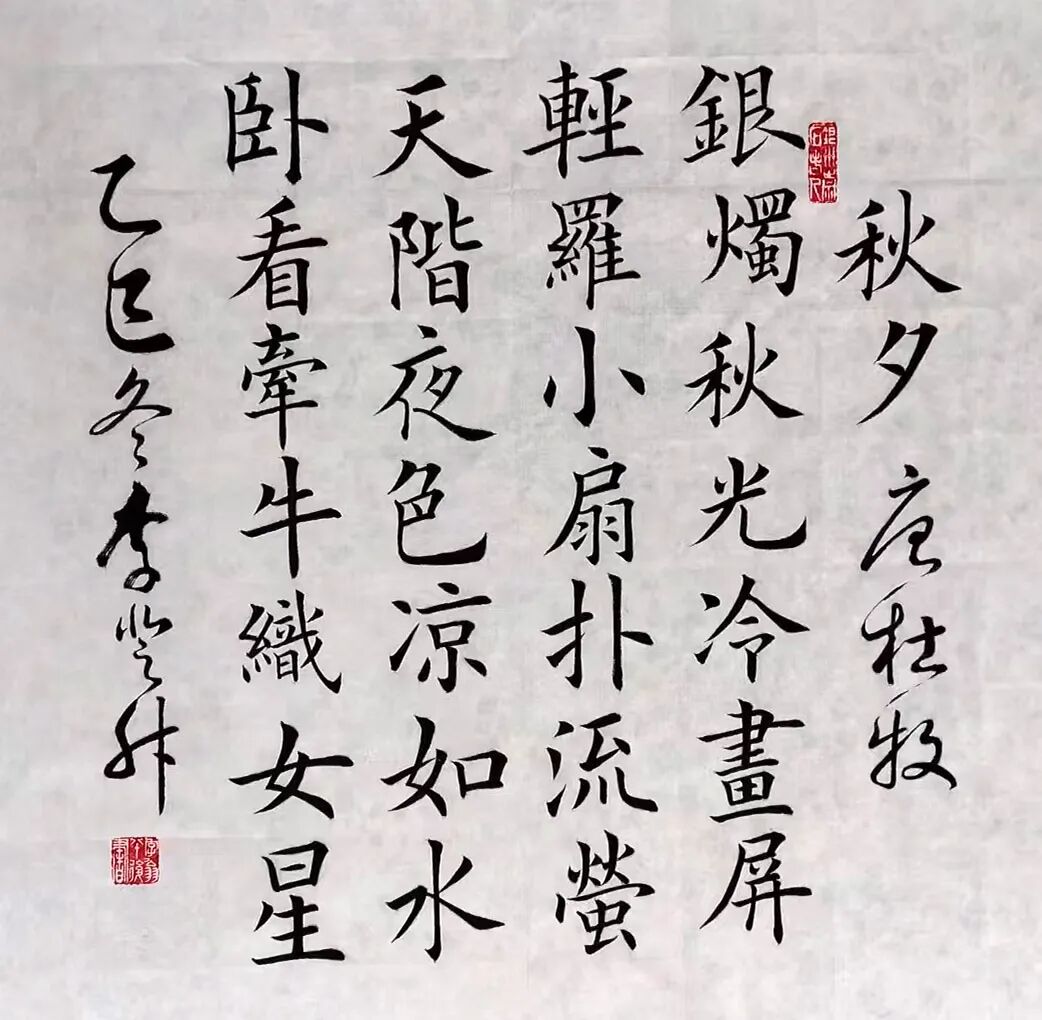 秋夕 唐 杜牧
銀燭秋光冷畫屏
輕羅小扇扑流螢
天階夜色凉如水
卧看牽牛織女星
乙巳冬李登升